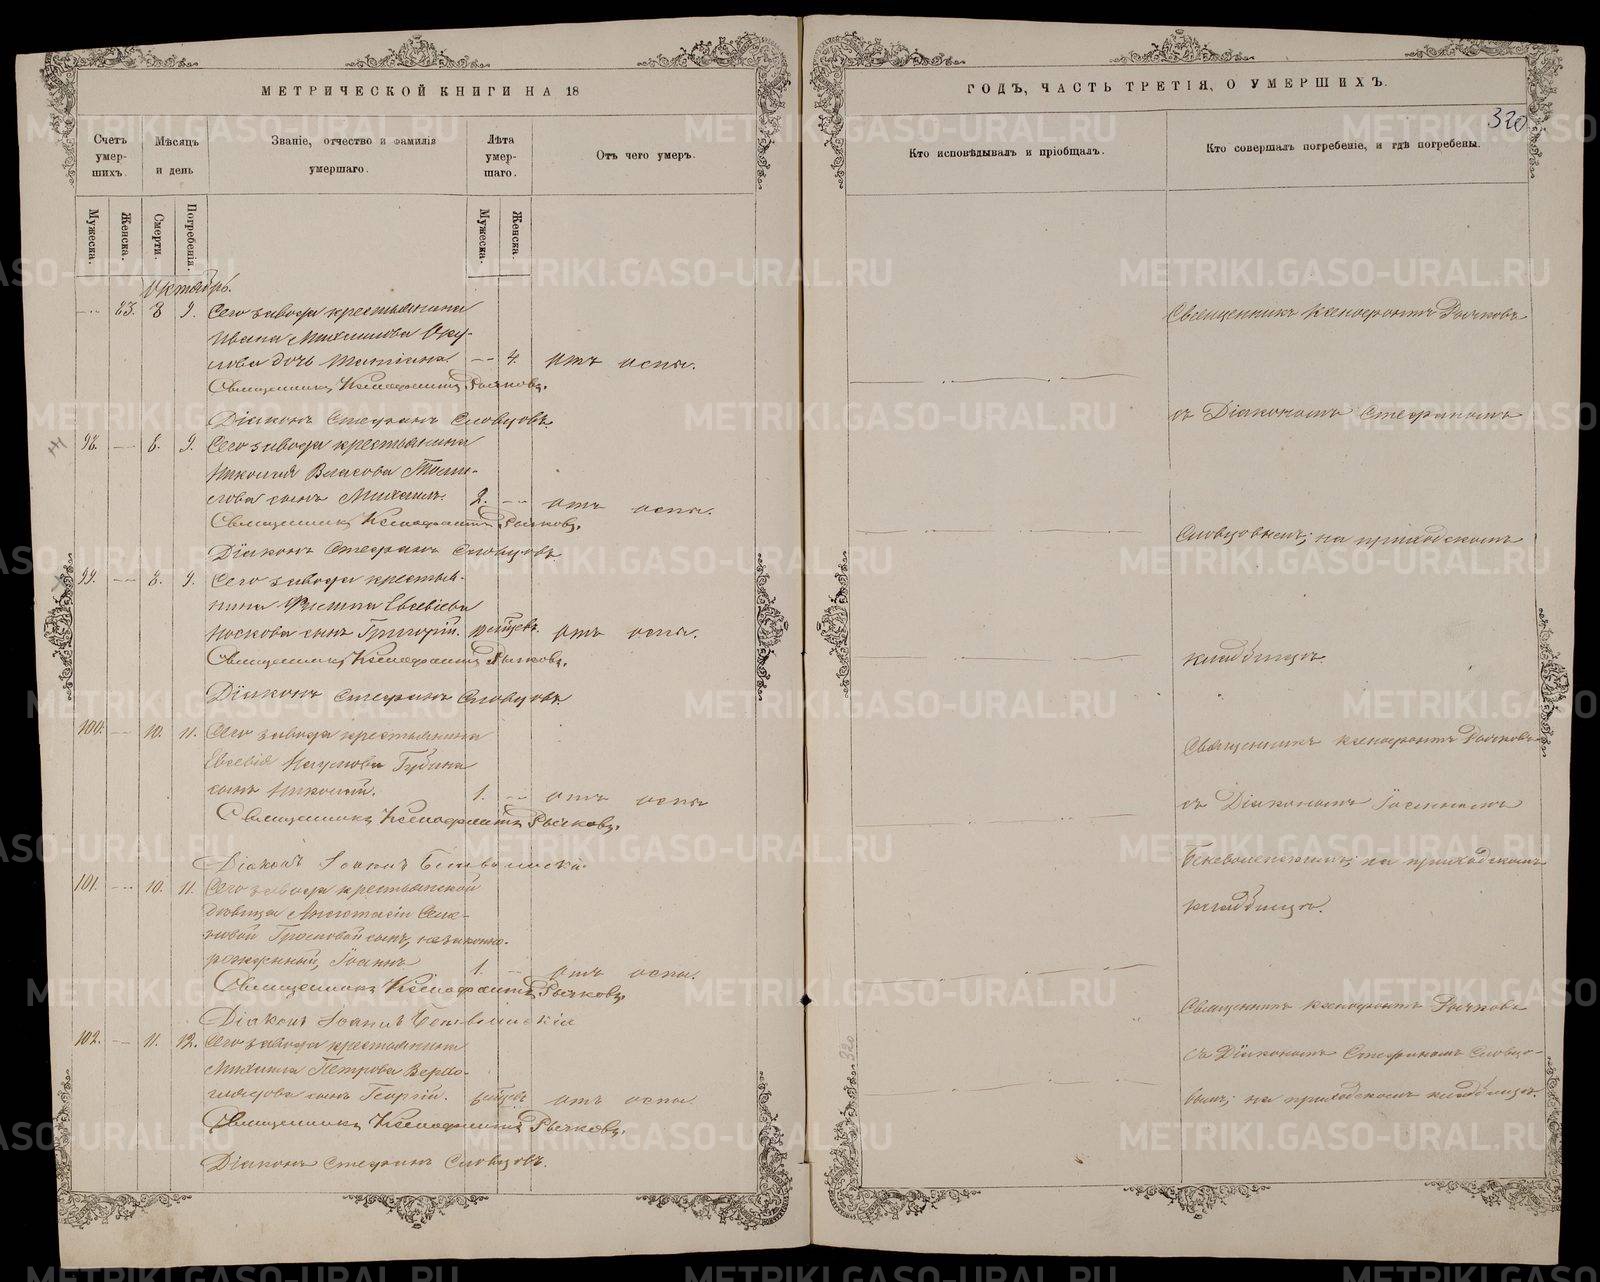 МЕТРИЧЕСКОЙ КНИГИ НА 18
Счетъ умер-шихъ.
Мѣсяцъ и день
Званіе, отчество и фамилія умершаго.
Лѣта умер-шаго.
Отъ чего умеръ.
Мужеска.
Женска.
Смерти.
Погребенія.
Мужеска.
Женска.
Октябрь.
8 9. Сего завода крестьянина
Ивана Михайлова Оку-
лова дочь Татіана. 4. отъ оспы.
Священникъ Ксенофонтъ Рычковъ.
Діаконъ Стефанъ Словцовъ
98. 8. 9. Сего завода крестьянина
Николая Власова
сынъ Михаилъ. 2. отъ оспы.
Священникъ Ксенофонтъ Рычковъ.
Діаконъ Стефанъ Словцовъ
99. 8. 9. Сего завода крестья-
нина Филиппа Евсевіева
Носкова сынъ Григорій. отъ оспы.
Священникъ Ксенофонтъ Рычковъ.
Діаконъ Стефанъ Словцовъ
100. 10. 11. Сего завода крестьянина
Евсевія Наумова Губина
сынъ Николай. 1. отъ оспы
Священникъ Ксенофонтъ Рычковъ.
Діаконъ Іоаннъ
101. 10. 11. Сего завода крестьянской
дѣвицы Анастасіи
сынъ, незаконно-
рожденный, Іоаннъ 1. отъ оспы.
Священникъ Ксенофонтъ Рычковъ.
Діаконъ Іоаннъ
102. 11. 12. Сего завода крестьянина
Михаила Петрова
сынъ Георгій. отъ оспы
Священникъ Ксенофонтъ Рычковъ.
Діаконъ Стефанъ Словцовъ.
ГОДЪ, ЧАСТЬ ТРЕТІЯ, О УМЕРШИХЪ.
320
Кто исповѣдывалъ и пріобщалъ.
Кто совершалъ погребеніе, и гдѣ погребены.
Священникъ Ксенофонтъ Рычковъ
съ Діакономъ Стефаномъ
Словцовымъ; на приходскомъ
кладбищѣ.
Священникъ Ксенофонтъ Рычковъ
съ Діакономъ Іоанномъ
на приходскомъ
кладбищѣ.
Священникъ Ксенофонтъ Рычковъ
съ Діакономъ Стефаномъ Словцо-
вымъ; на приходскомъ кладбищѣ.
320
METRIKI.GASO-URAL.RU